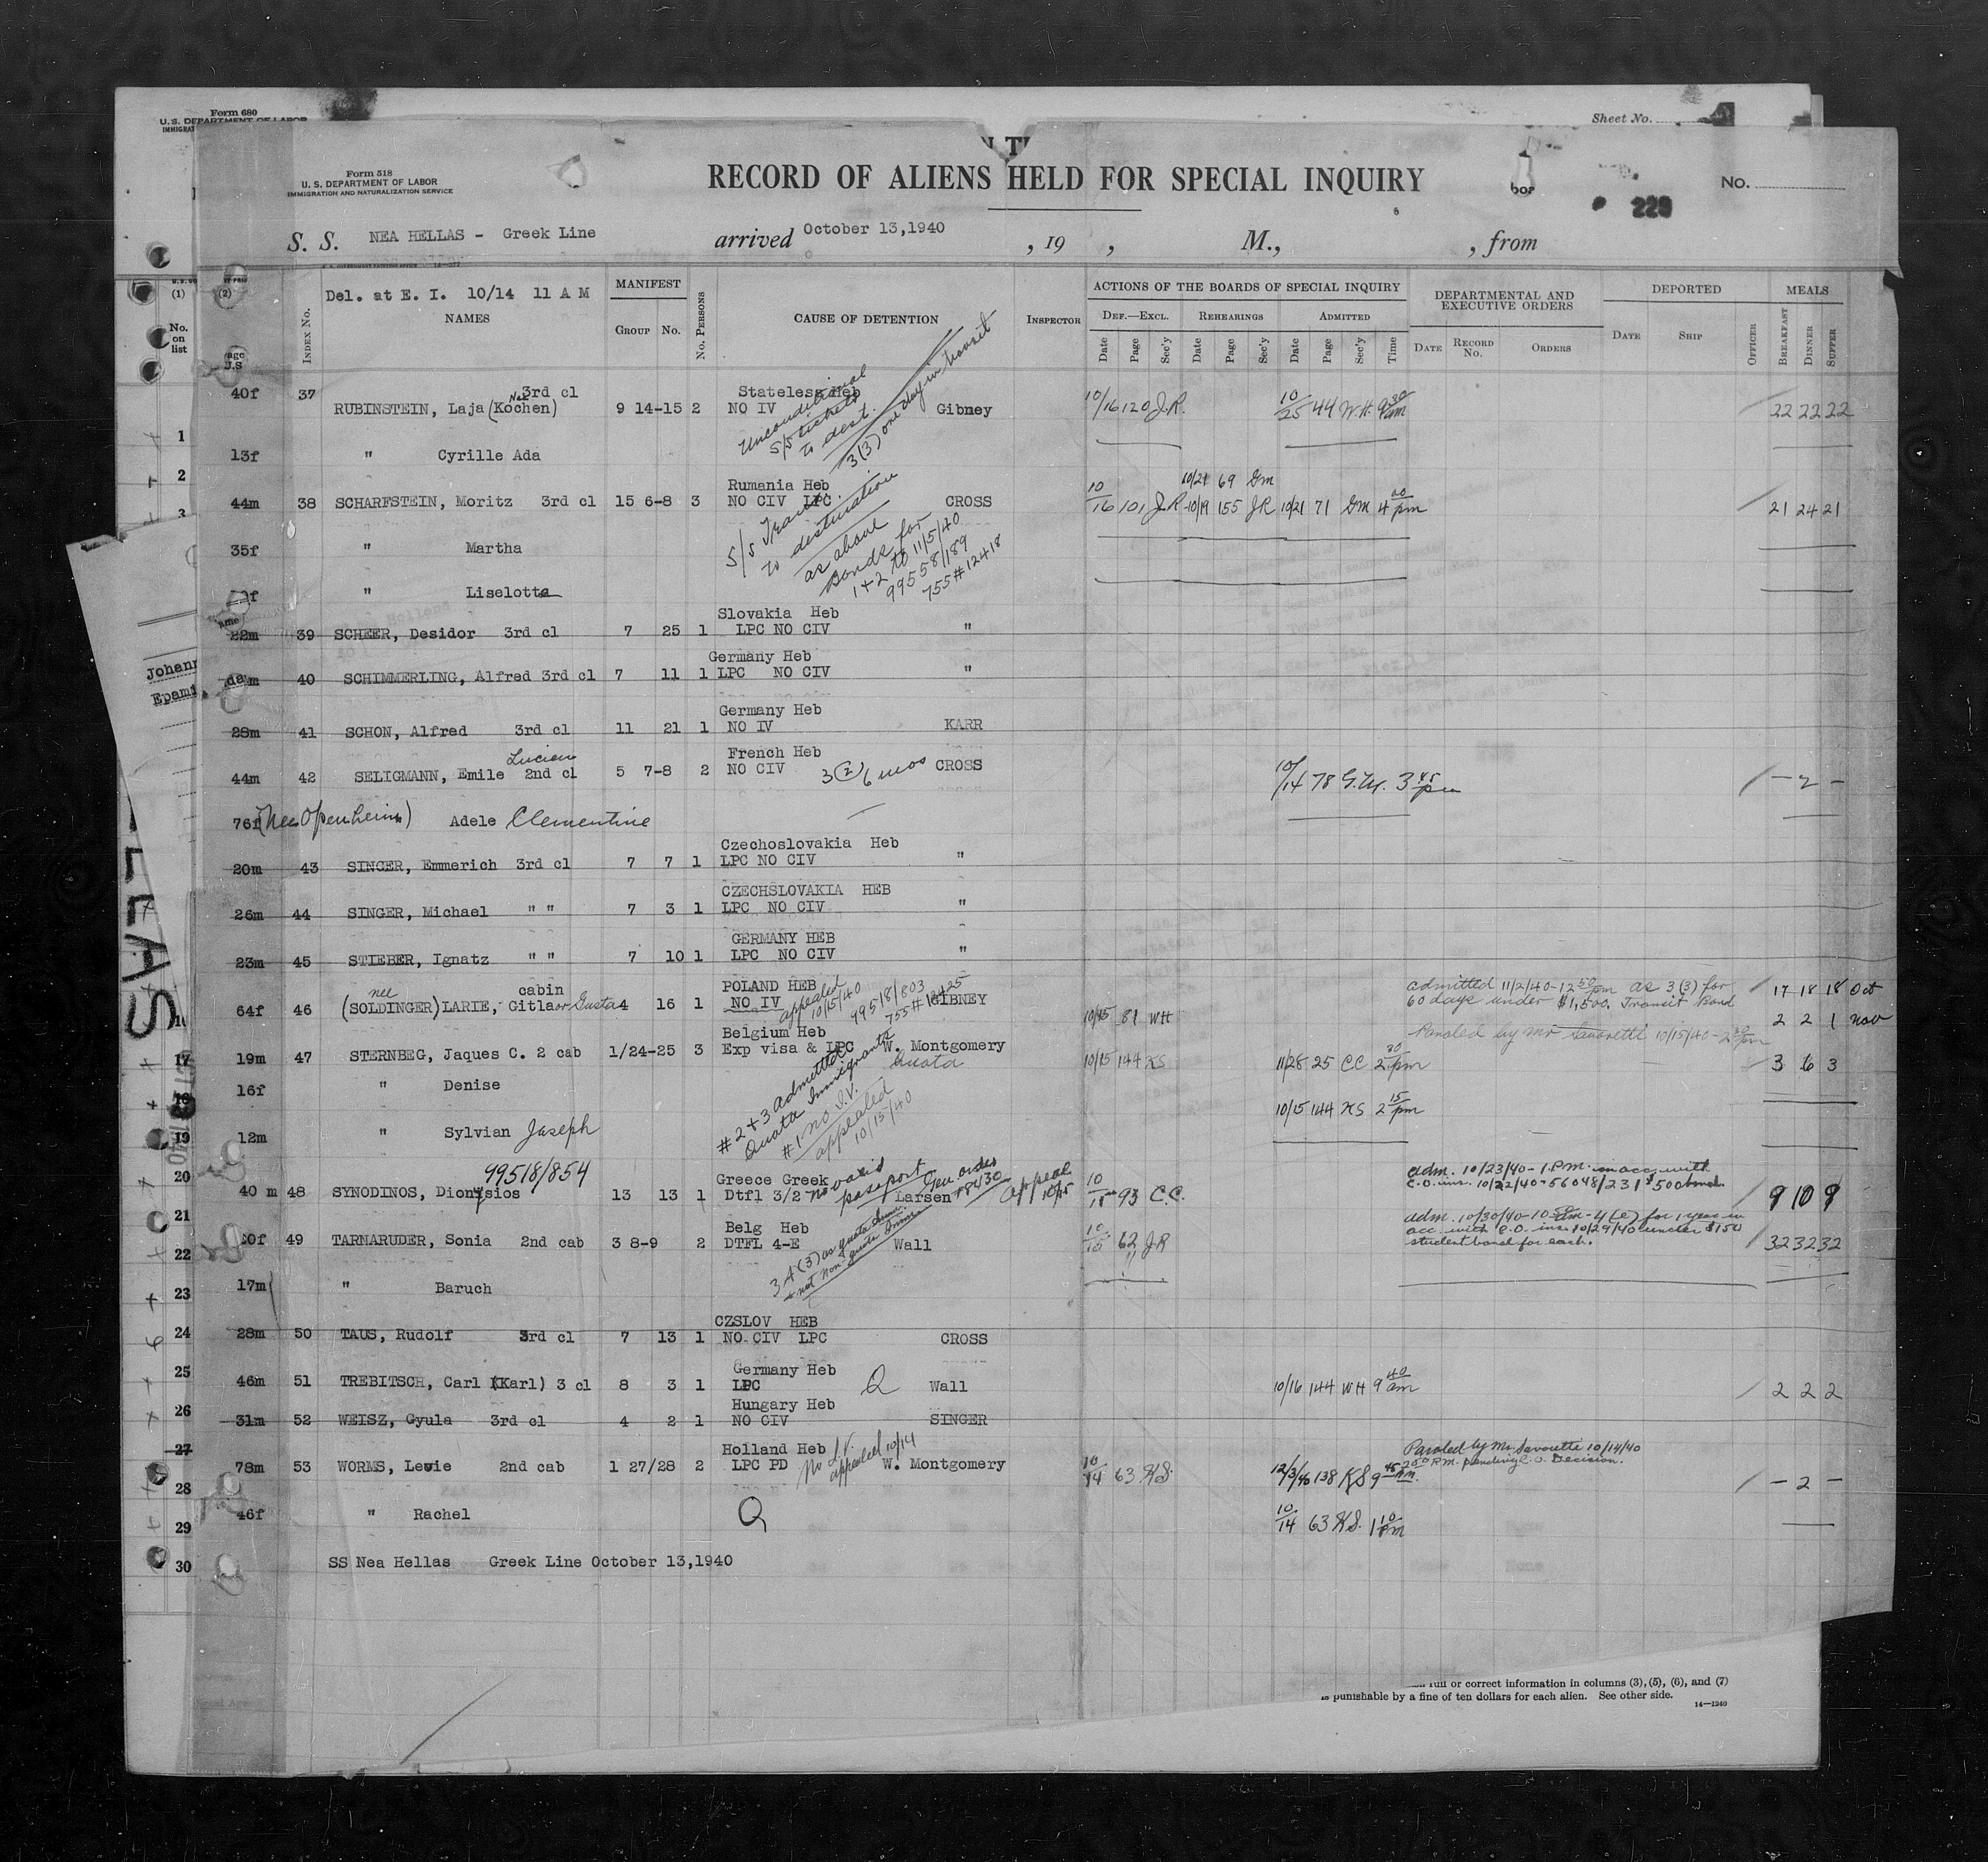 Form 680
U. S. DEPARTMENT OF LABOR
Sheet No.
Form 518
U. S. DEPARTMENT OF LABOR
IMMIGRATION AND NATURALIZATION SERVICE
RECORD OF ALIENS HELD FOR SPECIAL INQUIRY
No.
S. S. NEA HELLAS - Greek Line arrived October 13,1940 , 19 , M., , from
Del. at E. I. 10/14 11 A M
NAMES
Index No.
MANIFEST
Group No.
No. Persons
CAUSE OF DETENTION
Inspector
ACTIONS OF THE BOARDS OF SPECIAL INQUIRY
Def.—Excl. Rehearings Admitted
Date Page Sec'y Date Page Sec'y Date Page Sec'y Time
DEPARTMENTAL AND EXECUTIVE ORDERS
Date Record No. Orders
DEPORTED
Date Ship Officer
MEALS
Breakfast Dinner Supper
40f 37 RUBINSTEIN, Laja (Kochen) 3rd cl 9 14-15 2 Stateless Heb NO IV Gibney 10/16 120 J.R. 10/25 44 W.H. 9 30 am 22 22 22
Unconditional
S/S tickets
to dest.
3(3) one day in transit
13f " Cyrille Ada
44m 38 SCHARFSTEIN, Moritz 3rd cl 15 6-8 3 Rumania Heb NO CIV LPC CROSS 10/16 101 J.R 10/19 155 JR 10/21 71 Gm 4 00 pm 21 24 21
10/21 69 Gm
to destination
as above
Bonds for
1+2 to 11/5/40
99558/189
755#12418
35f " Martha
" Liselotta
22m 39 SCHEER, Desidor 3rd cl 7 25 1 Slovakia Heb LPC NO CIV "
40 SCHIMMERLING, Alfred 3rd cl 7 11 1 Germany Heb LPC NO CIV "
28m 41 SCHON, Alfred 3rd cl 11 21 1 Germany Heb NO IV KARR
44m 42 SELIGMANN, Emile Lucien 2nd cl 5 7-8 2 French Heb NO CIV 3(2) 6 mos CROSS 10/14 78 G.W. 3 45 pm - 2 -
76f (Nee Openheim) Adele Clementine
20m 43 SINGER, Emmerich 3rd cl 7 7 1 Czechoslovakia Heb LPC NO CIV "
26m 44 SINGER, Michael " " 7 3 1 CZECHSLOVAKIA HEB LPC NO CIV "
23m 45 STIEBER, Ignatz " " 7 10 1 GERMANY HEB LPC NO CIV "
64f 46 nee (SOLDINGER) LARIE, Gitla or Gusta cabin 4 16 1 POLAND HEB NO IV GIBNEY 10/15 81 WH 17 18 18 Oct
appealed 10/15/40
99518/803
755#12425
admitted 11/2/40-12 50 pm as 3(3) for
60 days under $1,500. Transit Bond
2 2 1 Nov
Paroled by Mr 10/15/40-2 30 pm
19m 47 STERNBEG, Jaques C. 2 cab 1/24-25 3 Belgium Heb Exp visa & LPC W. Montgomery 10/15 144 KS 11/28 25 CC 2 30 pm 3 6 3
Quota
#2+3 admitted
Quota Immigrants
#1 no I.V.
appealed
10/15/40
16f " Denise
10/15 144 KS 2 15 pm
12m " Sylvian Joseph
99518/854
40 m 48 SYNODINOS, Dionysios 13 13 1 Greece Greek Dtfl 3/2 Larsen 93 C.C. 9 10 9
no valid passport
Gen order #8430
Appeal 10/15
adm. 10/23/40-1 P.M. in acc. with
C.O. ins. 10/22/40-56048/231 $500 bond.
49 TARNARUDER, Sonia 2nd cab 3 8-9 2 Belg Heb DTFL 4-E Wall 10/15 62 J.R 32 32 32
adm. 10/30/40-10 am-4(e) for 1 year in
acc. with C.O. ins. 10/29/40 under $150
student bond for each.
17m " Baruch
28m 50 TAUS, Rudolf 3rd cl 7 13 1 CZSLOV HEB NO CIV LPC CROSS
46m 51 TREBITSCH, Carl (Karl) 3 cl 8 3 1 Germany Heb LPC Q Wall 10/16 144 WH 9 40 am 2 2 2
31m 52 WEISZ, Gyula 3rd cl 4 2 1 Hungary Heb NO CIV SINGER
78m 53 WORMS, Levie 2nd cab 1 27/28 2 Holland Heb LPC PD W. Montgomery 10/14 63 KS. 12/3/40 138 KS 9 45 A.M. - 2 -
No I.V.
appealed 10/14
Paroled by Mr. Savoretti 10/14/40
P.M. pending C.O. Decision.
46f " Rachel Q 10/14 63 KS. 1 10 Pm
SS Nea Hellas Greek Line October 13,1940
full or correct information in columns (3), (5), (6), and (7)
is punishable by a fine of ten dollars for each alien. See other side.
14—1240
(1)
(2)
No. on list
1
2
3
Johann
17
19
20
21
22
23
24
25
26
27
28
29
30